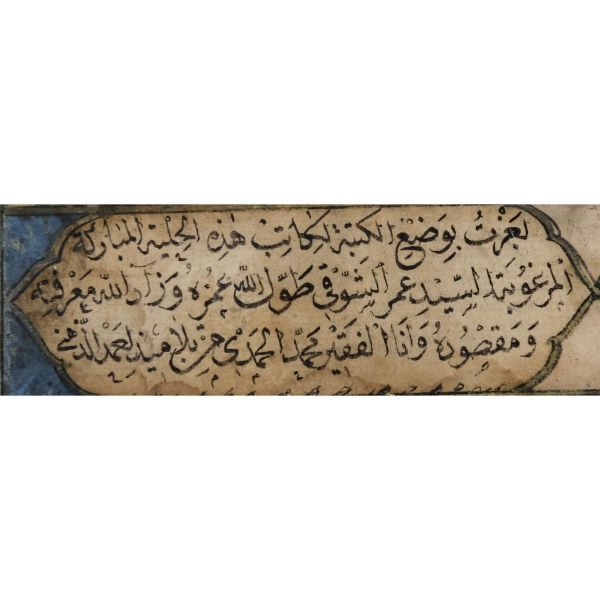 اجزت بوضع الكتبة لكاتب هذه الحلية المباركة
المرغوبة السيد عمر الشوقي طول الله عمره وزاد الله معرفته
ومقصوده وانا الفقير محمد الحمدي من تلاميذ